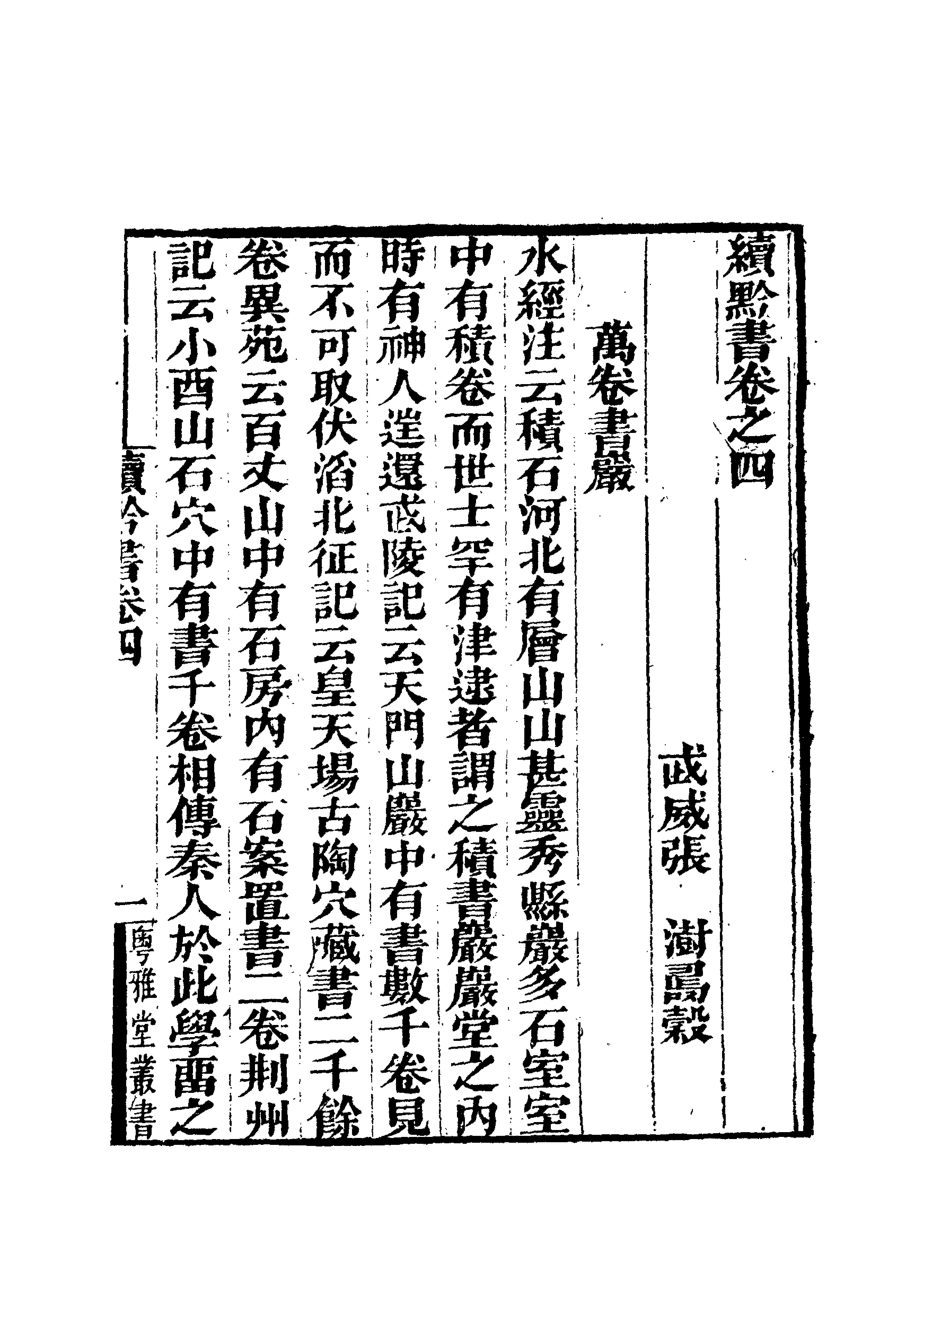 續黔書卷之四
武威張　澍撰
萬卷書巖
水經注云積石河北有層山山甚靈秀縣巖多石室室
中有積卷而世士罕有津逮者謂之積書巖巖堂之內
時有神人往還武陵記云天門山巖中有書數千卷見
而不可取伏滔北征記云皇天場古陶穴藏書二千餘
卷異苑云百丈山中有石房內有石案置書二卷荆州
記云小酉山石穴中有書千卷相傳秦人於此學畱之
續黔書卷四
一
粤雅堂叢書